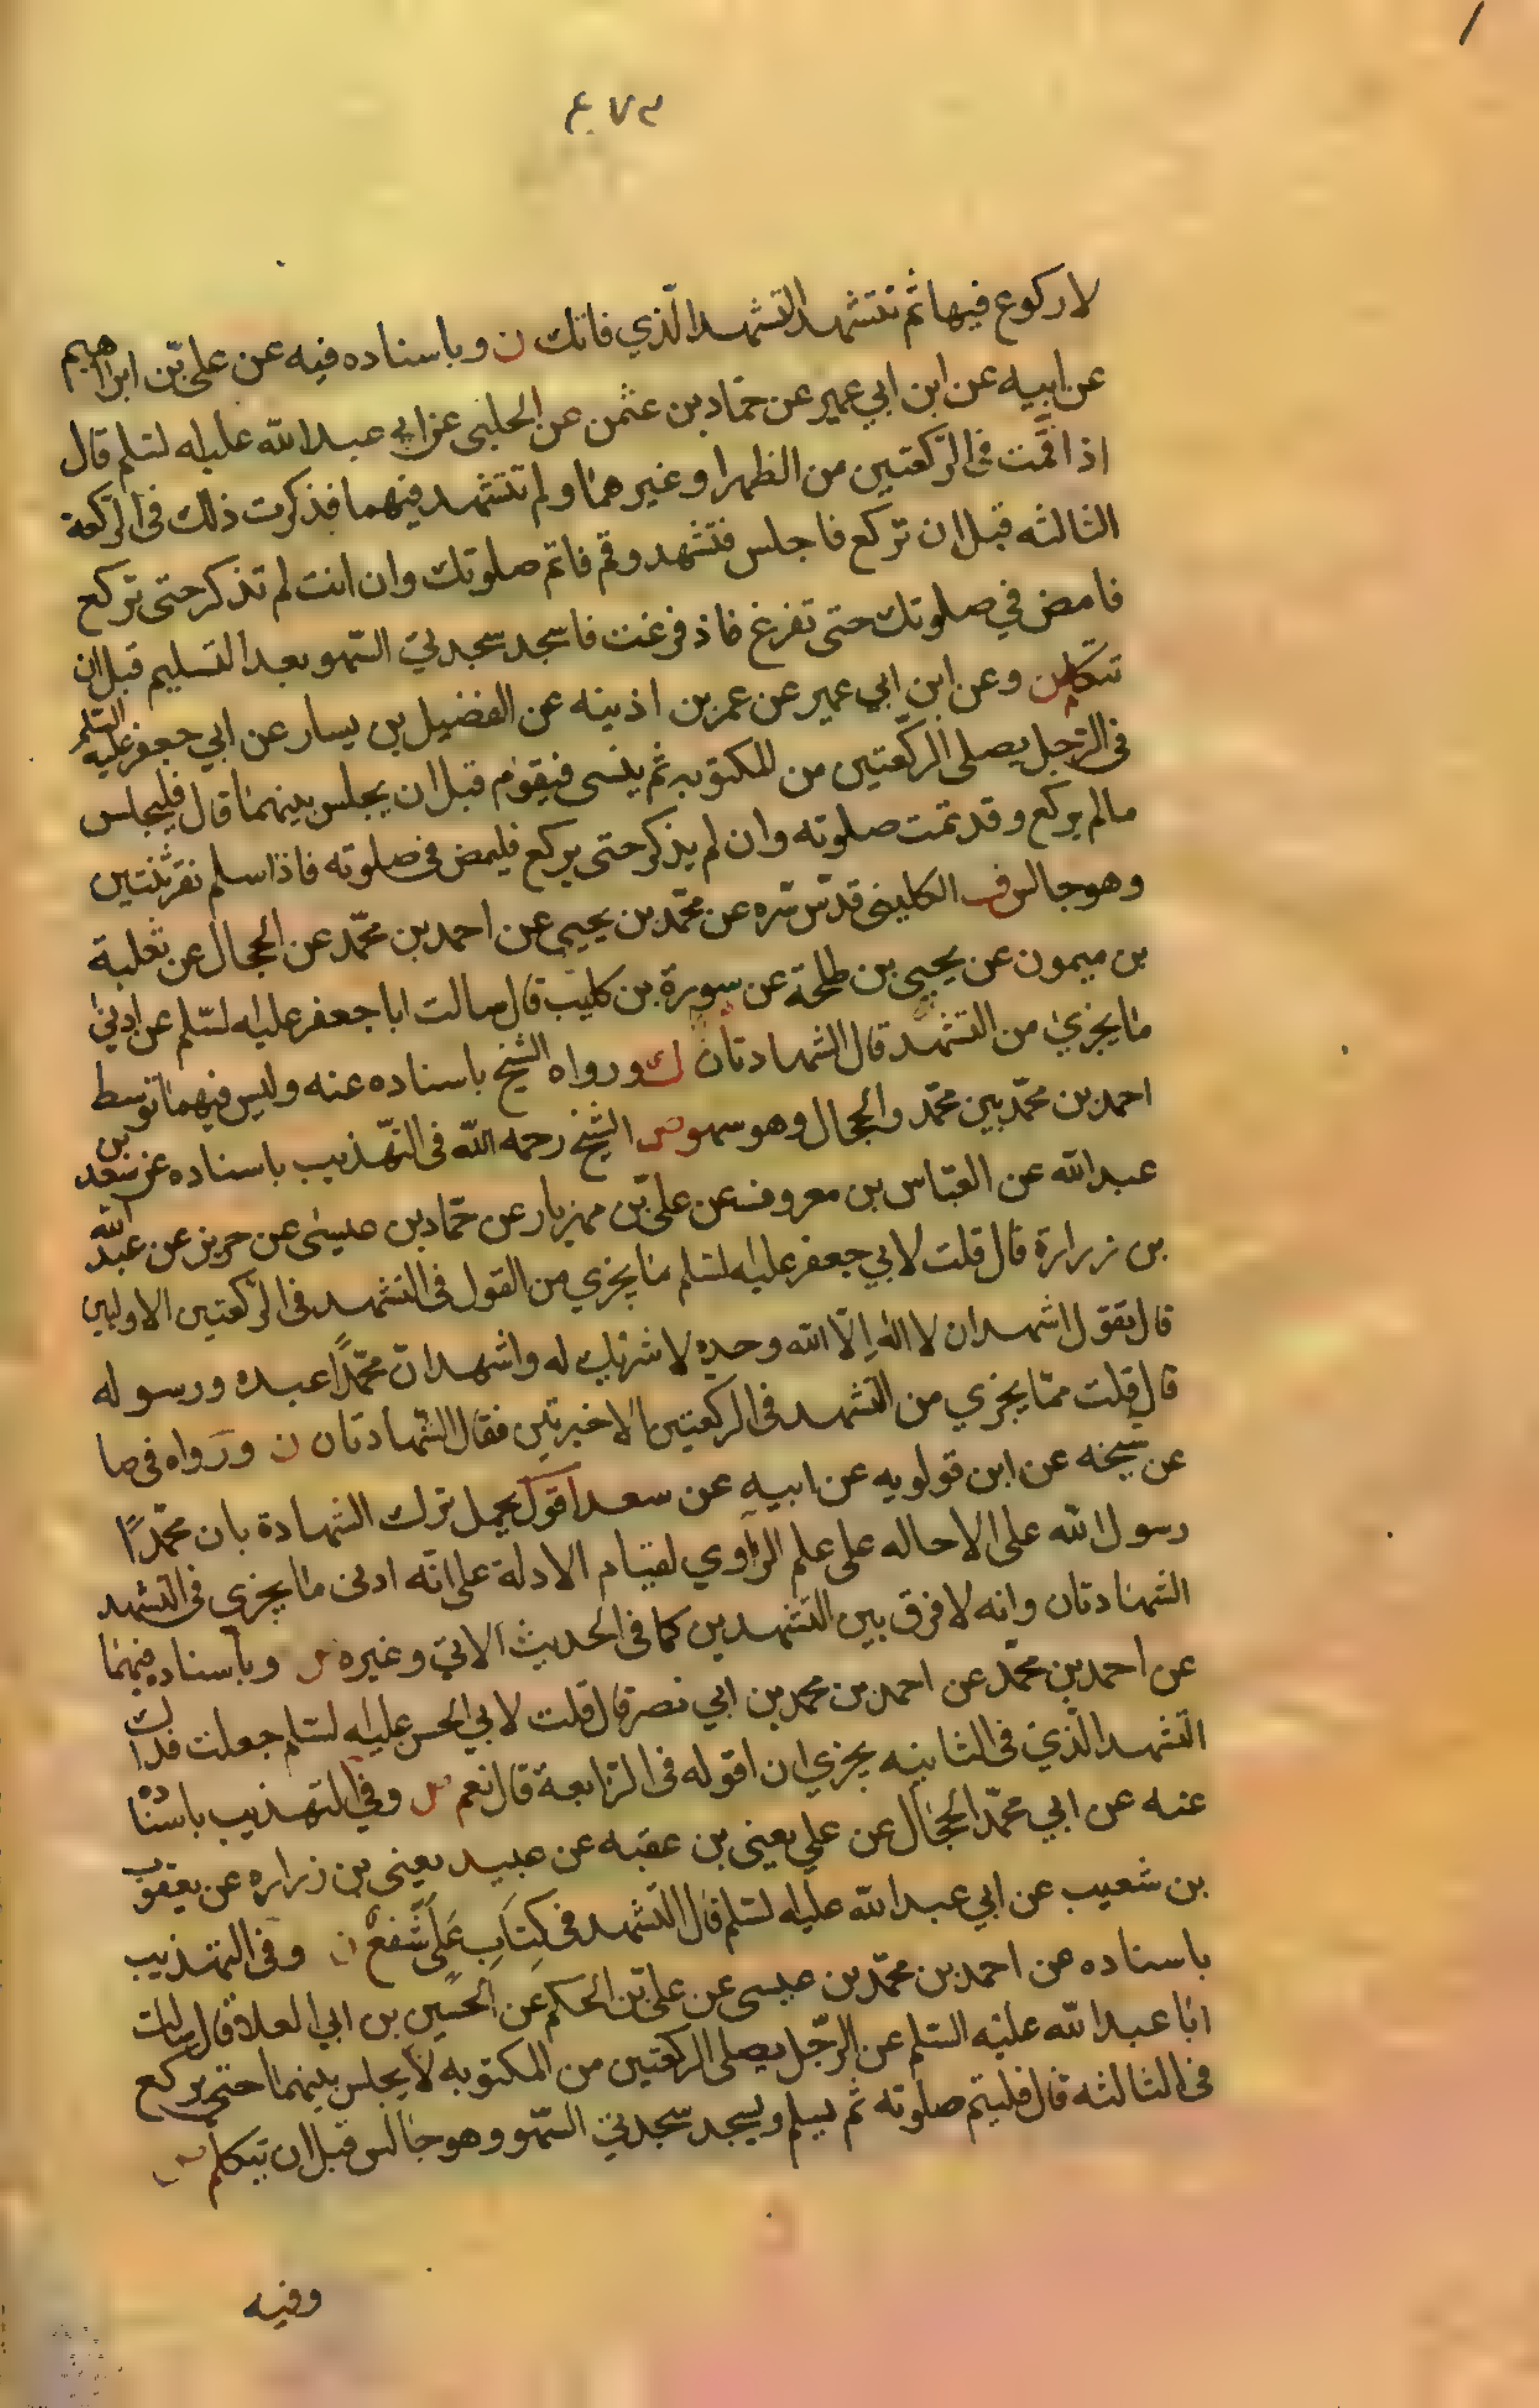 لا ركوع فيها ثم تتشهد التشهد الّذي فاتك ن وباسناده فيه عن علي بن ابراهيم
عن ابيه عن ابن ابي عمير عن حمّاد بن عثمن عن الحلبى عن ابي عبد الله عليه السلم قال
اذا قمت فى الرّكعتين من الظهر او غيرهما ولم تتشهد فيهما فذكرت ذلك فى الرّكعة
الثالثه قبل ان تركع فاجلس فتشهد وقم فاتم صلوتك وان انت لم تذكر حتى تركع
فامض في صلوتك حتى تفرغ فاذ فرغت فاسجد سجدتي السّهو بعد التسليم قبل ان
تتكلم ن وعن ابن ابي عمير عن عمر بن اذينه عن الفضيل بن يسار عن ابي جعفر عليه السلم
فى الرّجل يصلى الرّكعتين من المكتوبه ثم ينسى فيقوم قبل ان يجلس بينهما قال فليجلس
مالم يركع وقد تمت صلوته وان لم يذكر حتى يركع فليمض فى صلوته فاذا سلم نقر ثنتين
وهو جالس ف الكلينى قدّس سّره عن محمّد بن يحيى عن احمد بن محمّد عن الحجال عن ثعلبة
بن ميمون عن يحيى بن طلحة عن سورة بن كليب قال سالت ابا جعفر عليه السّلم عن ادنى
ما يجزي من التشهّد قال الشهادتان ك ورواه الشيخ باسناده عنه وليس فيهما توسط
احمد بن محمّد بين محمّد والحجال وهو سهو ص الشيخ رحمه الله فى التّهذيب باسناده عن سعد بن
عبد الله عن العبّاس بن معروف عن علي بن مهزيار عن حمّاد بن عيسى عن حريز عن عبد الله
بن زرارة قال قلت لابي جعفر عليه السلم ما يجزي من القول فى التشهد فى الرّكعتين الاوليين
قال تقول اشهد ان لا اله إلّا الله وحده لا شريك له واشهد انّ محمّدًا عبده ورسوله
قال قلت ممّا يجزي من التشهد فى الركعتين الاخيرتين فقال الشّهادتان ن ورواه فى صا
عن شيخه عن ابن قولويه عن ابيه عن سعد اقول يحمل ترك الشهادة بان محمّدًا
رسول الله على الاحاله على علم الرّاوي لقيام الادلة على انّه ادنى ما يجزى فى التشهد
الشهادتان وانه لا فرق بين التشهدين كما فى الحديث الاتي وغيره ل وباسناده فيهما
عن احمد بن محمّد عن احمد بن محمد بن ابي نصر قال قلت لابي الحسن عليه السلم جعلت فداك
التشهد الّذي فى الثانيه يجزي ان اقوله فى الرّابعة قال نعم ل وفي التهذيب باسناده
عنه عن ابي محمّد الحجّال عن علي يعنى بن عقبه عن عبيد يعنى بن زراره عن يعقوب
بن شعيب عن ابي عبد الله عليه السلم قال التشهد فى كِتَابِ عَلي شَفعٌ ن وفى التهذيب
باسناده عن احمد بن محمّد بن عيسى عن علي بن الحكم عن الحسين بن ابي العلا قال سالت
ابا عبد الله عليه السّلم عن الرّجل يصلى الركعتين من المكتوبه لا يجلس بينهما حتى يركع
فى الثالثه قال فليتم صلوته ثم يسلم ويسجد سجدتي السّهو وهو جالس قبل ان يتكلم
وفيه